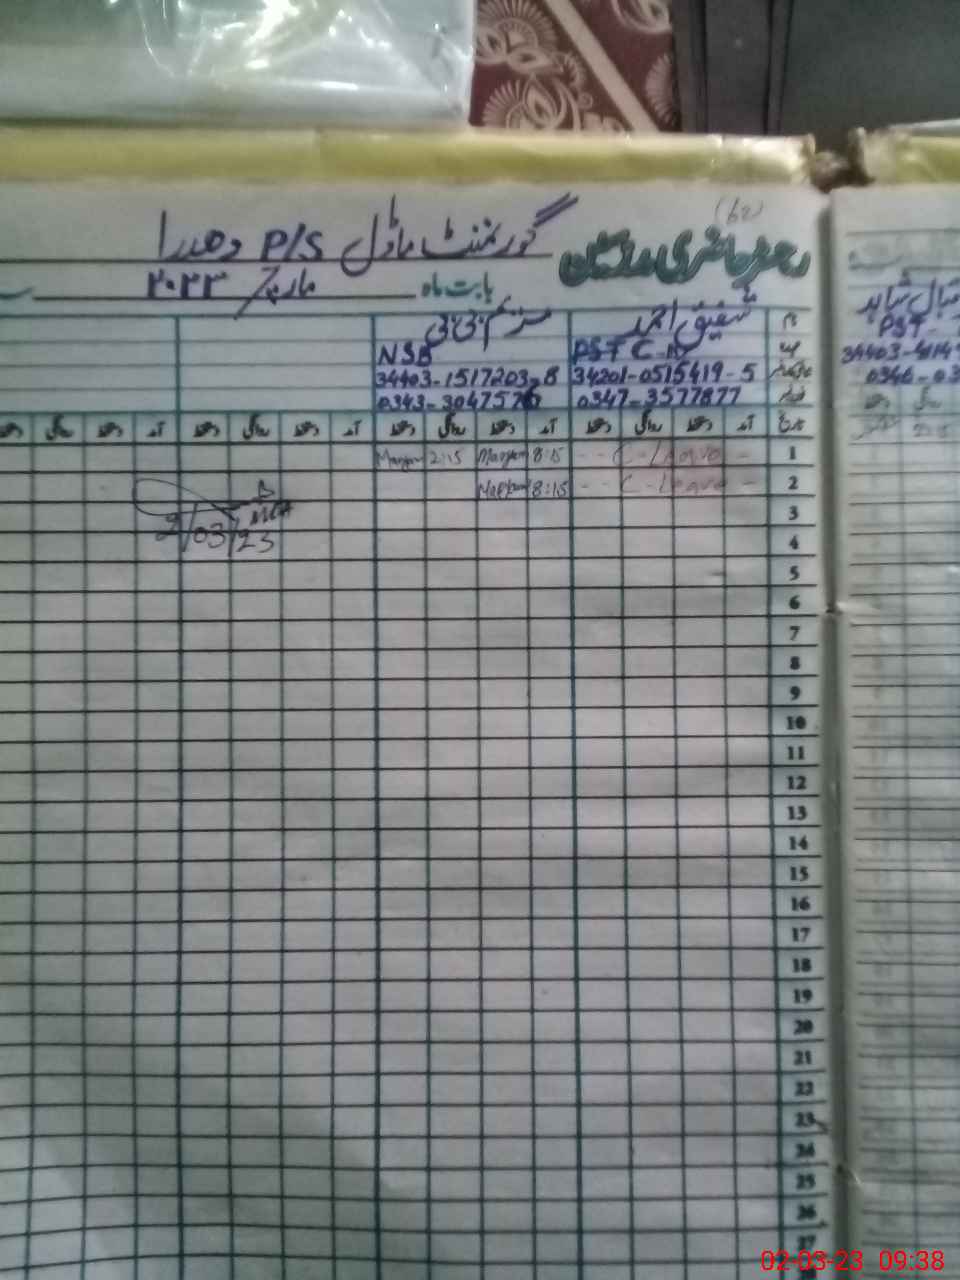 (62)
رجسٹر حاضری مدرسین گورنمنٹ ماڈل P/S دھدرا
بابت ماہ مارچ ۲۰۲۳
نام شفیق احمد مریم بی بی
عہدہ PST NSB
34201-0515419-5 34403-1517203-8
0347-3577877 0343-3047576
تاریخ آمد دستخط روانگی دستخط آمد دستخط روانگی دستخط آمد دستخط روانگی دستخط آمد دستخط روانگی دستخط
1 - - C-Leave - 8:15 Maryam 2:15 Maryam
2 - - C-Leave - 8:15 Maryam
MEA
2/03/23
3
4
5
6
7
8
9
10
11
12
13
14
15
16
17
18
19
20
21
22
23
24
25
26
27
PST
0346-03
02-03-23 09:38